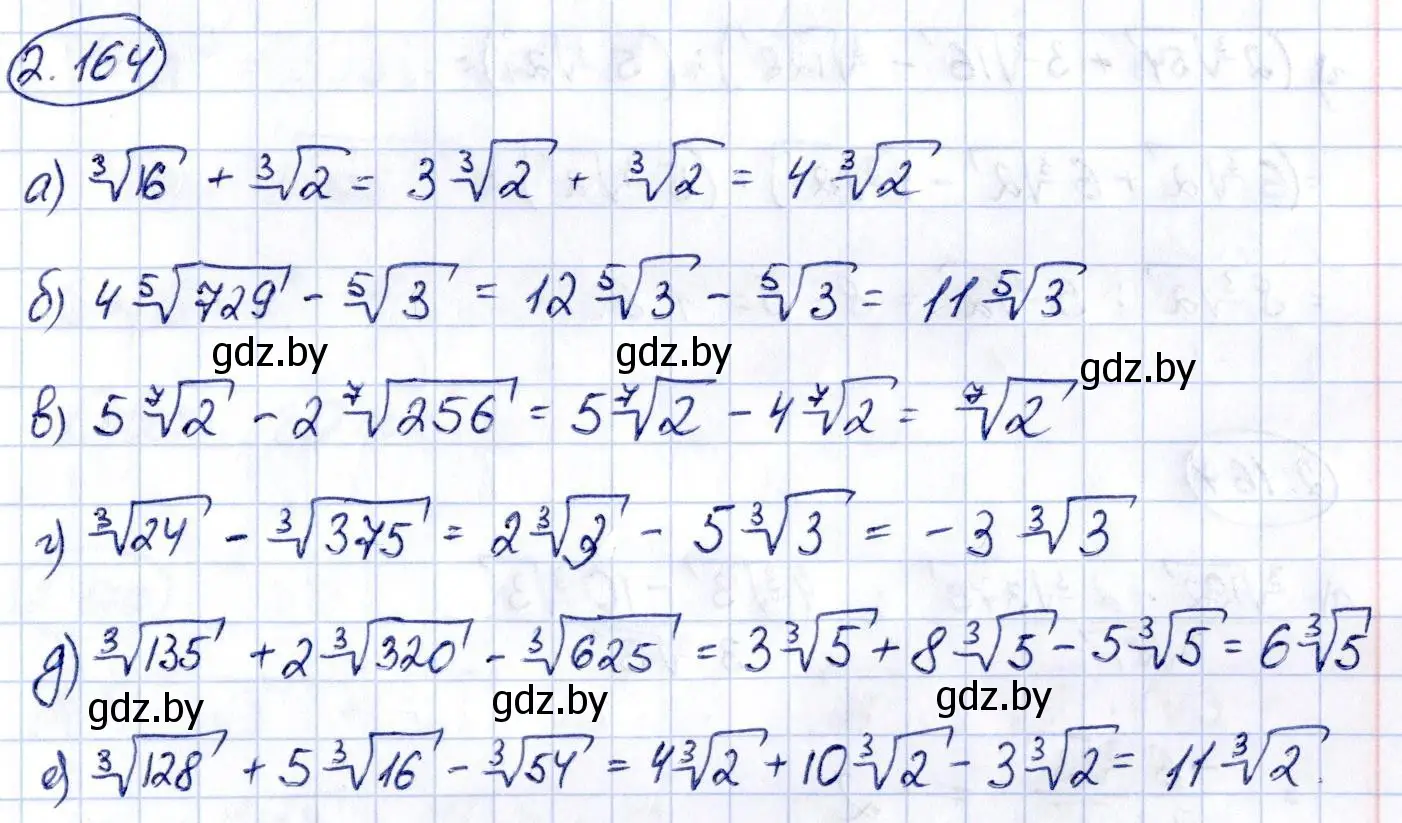 2.164
а) ∛16 + ∛2 = 3∛2 + ∛2 = 4∛2
б) 4⁵√729 - ⁵√3 = 12⁵√3 - ⁵√3 = 11⁵√3
gdz.by gdz.by gdz.by
в) 5⁷√2 - 2⁷√256 = 5⁷√2 - 4⁷√2 = ⁷√2
г) ∛24 - ∛375 = 2∛3 - 5∛3 = -3∛3
д) ∛135 + 2∛320 - ∛625 = 3∛5 + 8∛5 - 5∛5 = 6∛5
gdz.by gdz.by gdz.by
е) ∛128 + 5∛16 - ∛54 = 4∛2 + 10∛2 - 3∛2 = 11∛2.